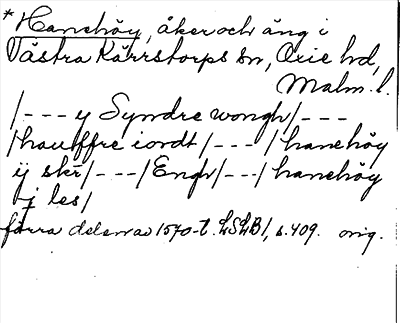 * Hanehöy, åker och äng i
Västra Kärrstorps sn, Oxie hd,
Malm. l.
/--- y Syndre wongh/---
/hauffre iordt/---/hanehöy
ij skr/---/Engh/---/hanehöy
j les/
förra delen av 1570-t. LSLB 1, s. 409. orig.